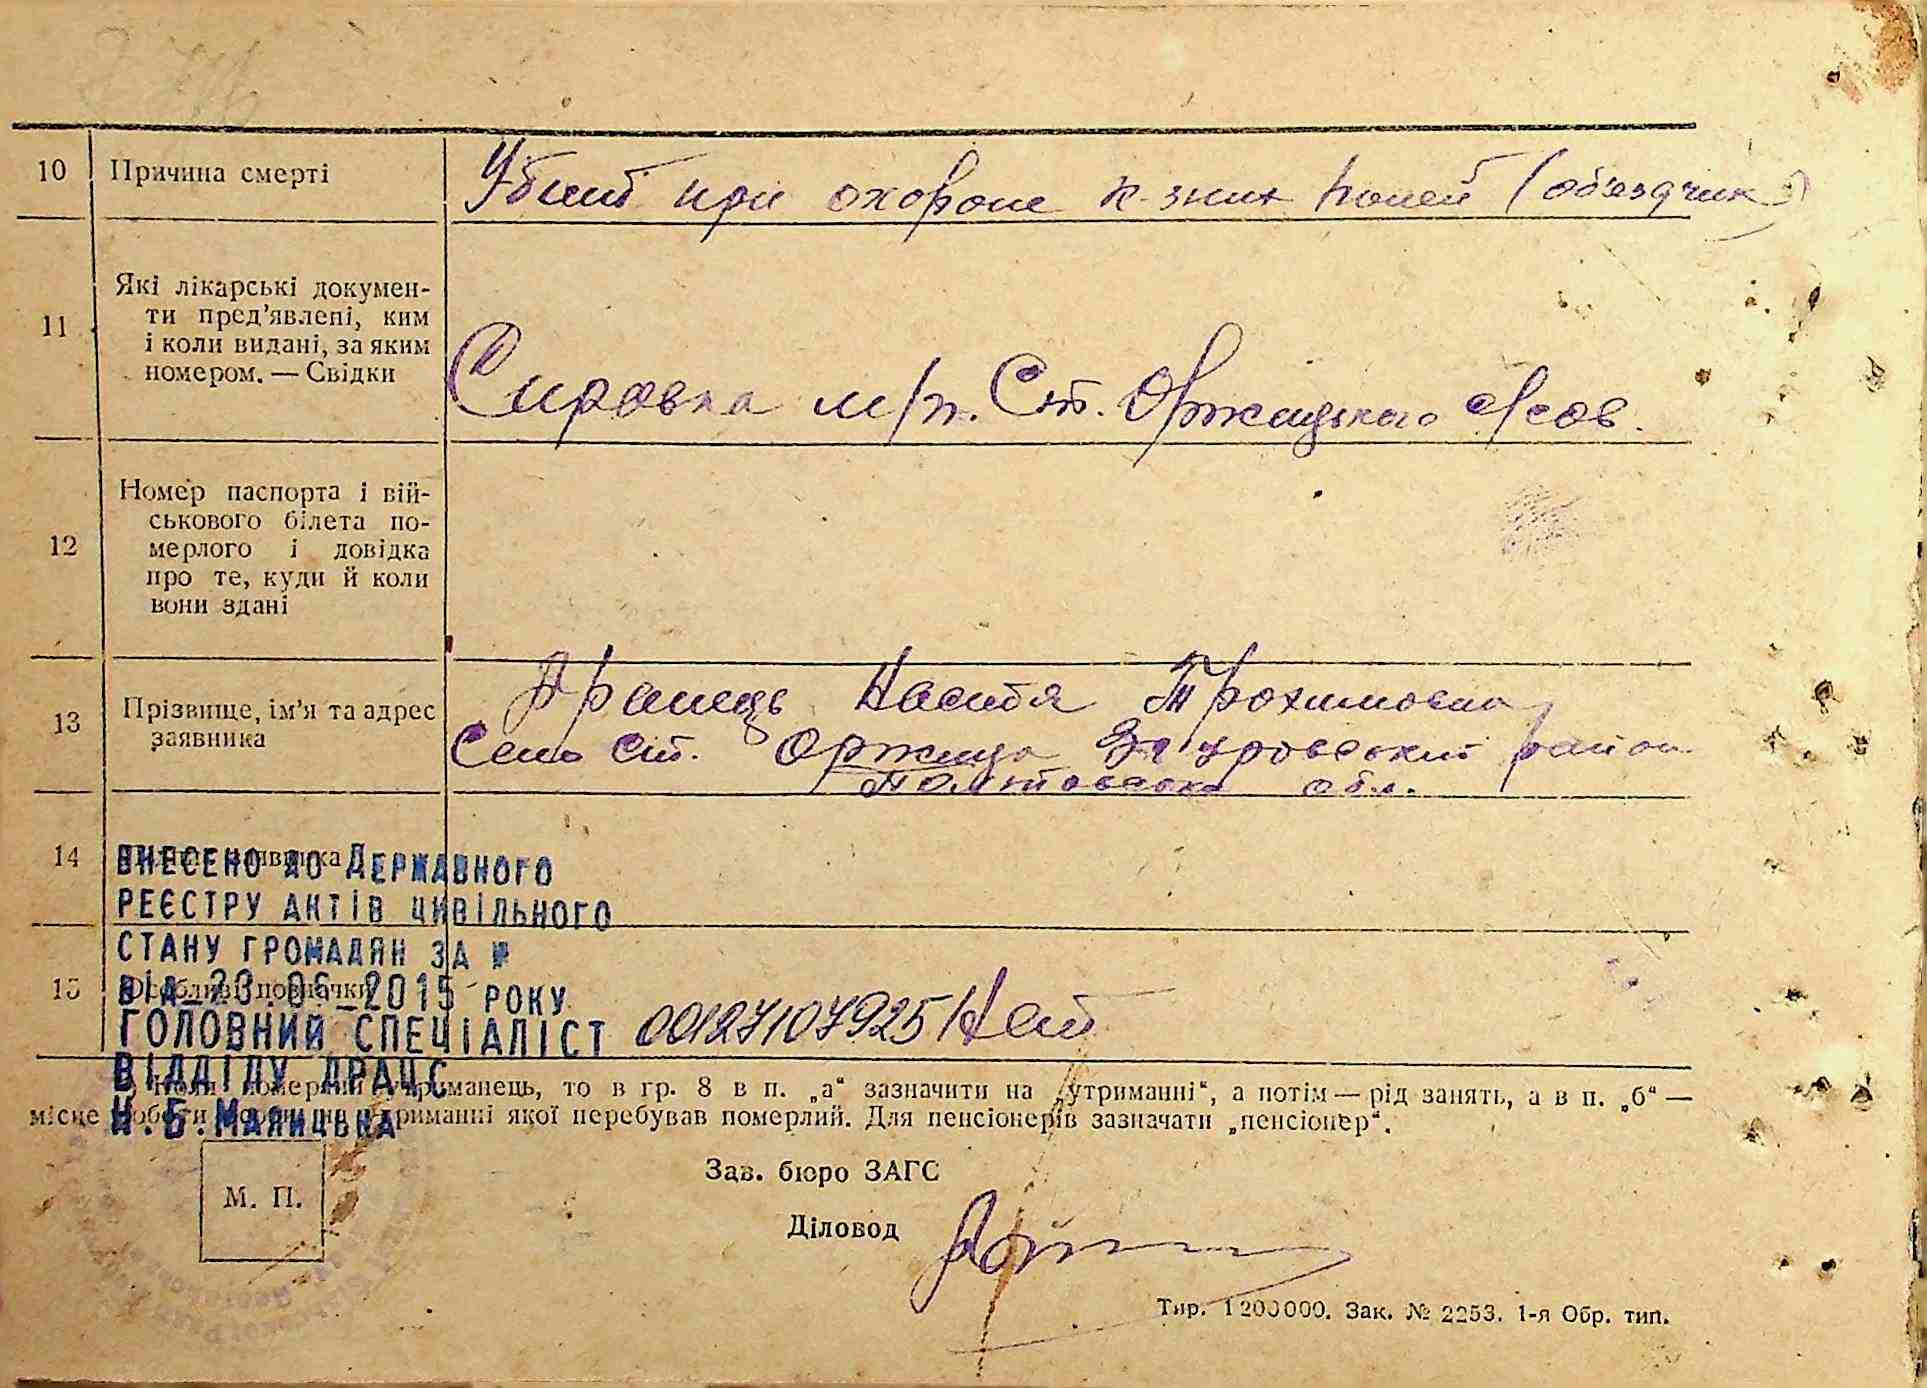 10 Причина смерті
Убит при охороне к-зних полей (об'ездчик)
11 Які лікарські докумен-
ти пред'явлені, ким
і коли видані, за яким
номером. — Свідки
Справка Ст. Оржицького
12 Номер паспорта і вій-
ськового білета по-
мерлого і довідка
про те, куди й коли
вони здані
13 Прізвище, ім'я та адрес
заявника
Настя Трохимовна
Село Ст. Оржица район
Полтовська обл.
14
ВНЕСЕНО ДО ДЕРЖАВНОГО
РЕЄСТРУ АКТІВ ЦИВІЛЬНОГО
СТАНУ ГРОМАДЯН ЗА №
15
ВІД 2015 РОКУ
ГОЛОВНИЙ СПЕЦІАЛІСТ 00127107925
ВІДДІЛУ ДРАЦС
утриманець, то в гр. 8 в п. „а“ зазначити на „утриманні“, а потім — рід занять, а в п. „б“ —
місце утриманні якої перебував померлий. Для пенсіонерів зазначати „пенсіонер“.
Зав. бюро ЗАГС
М. П.
Діловод
Тир. 1200000. Зак. № 2253. 1-я Обр. тип.